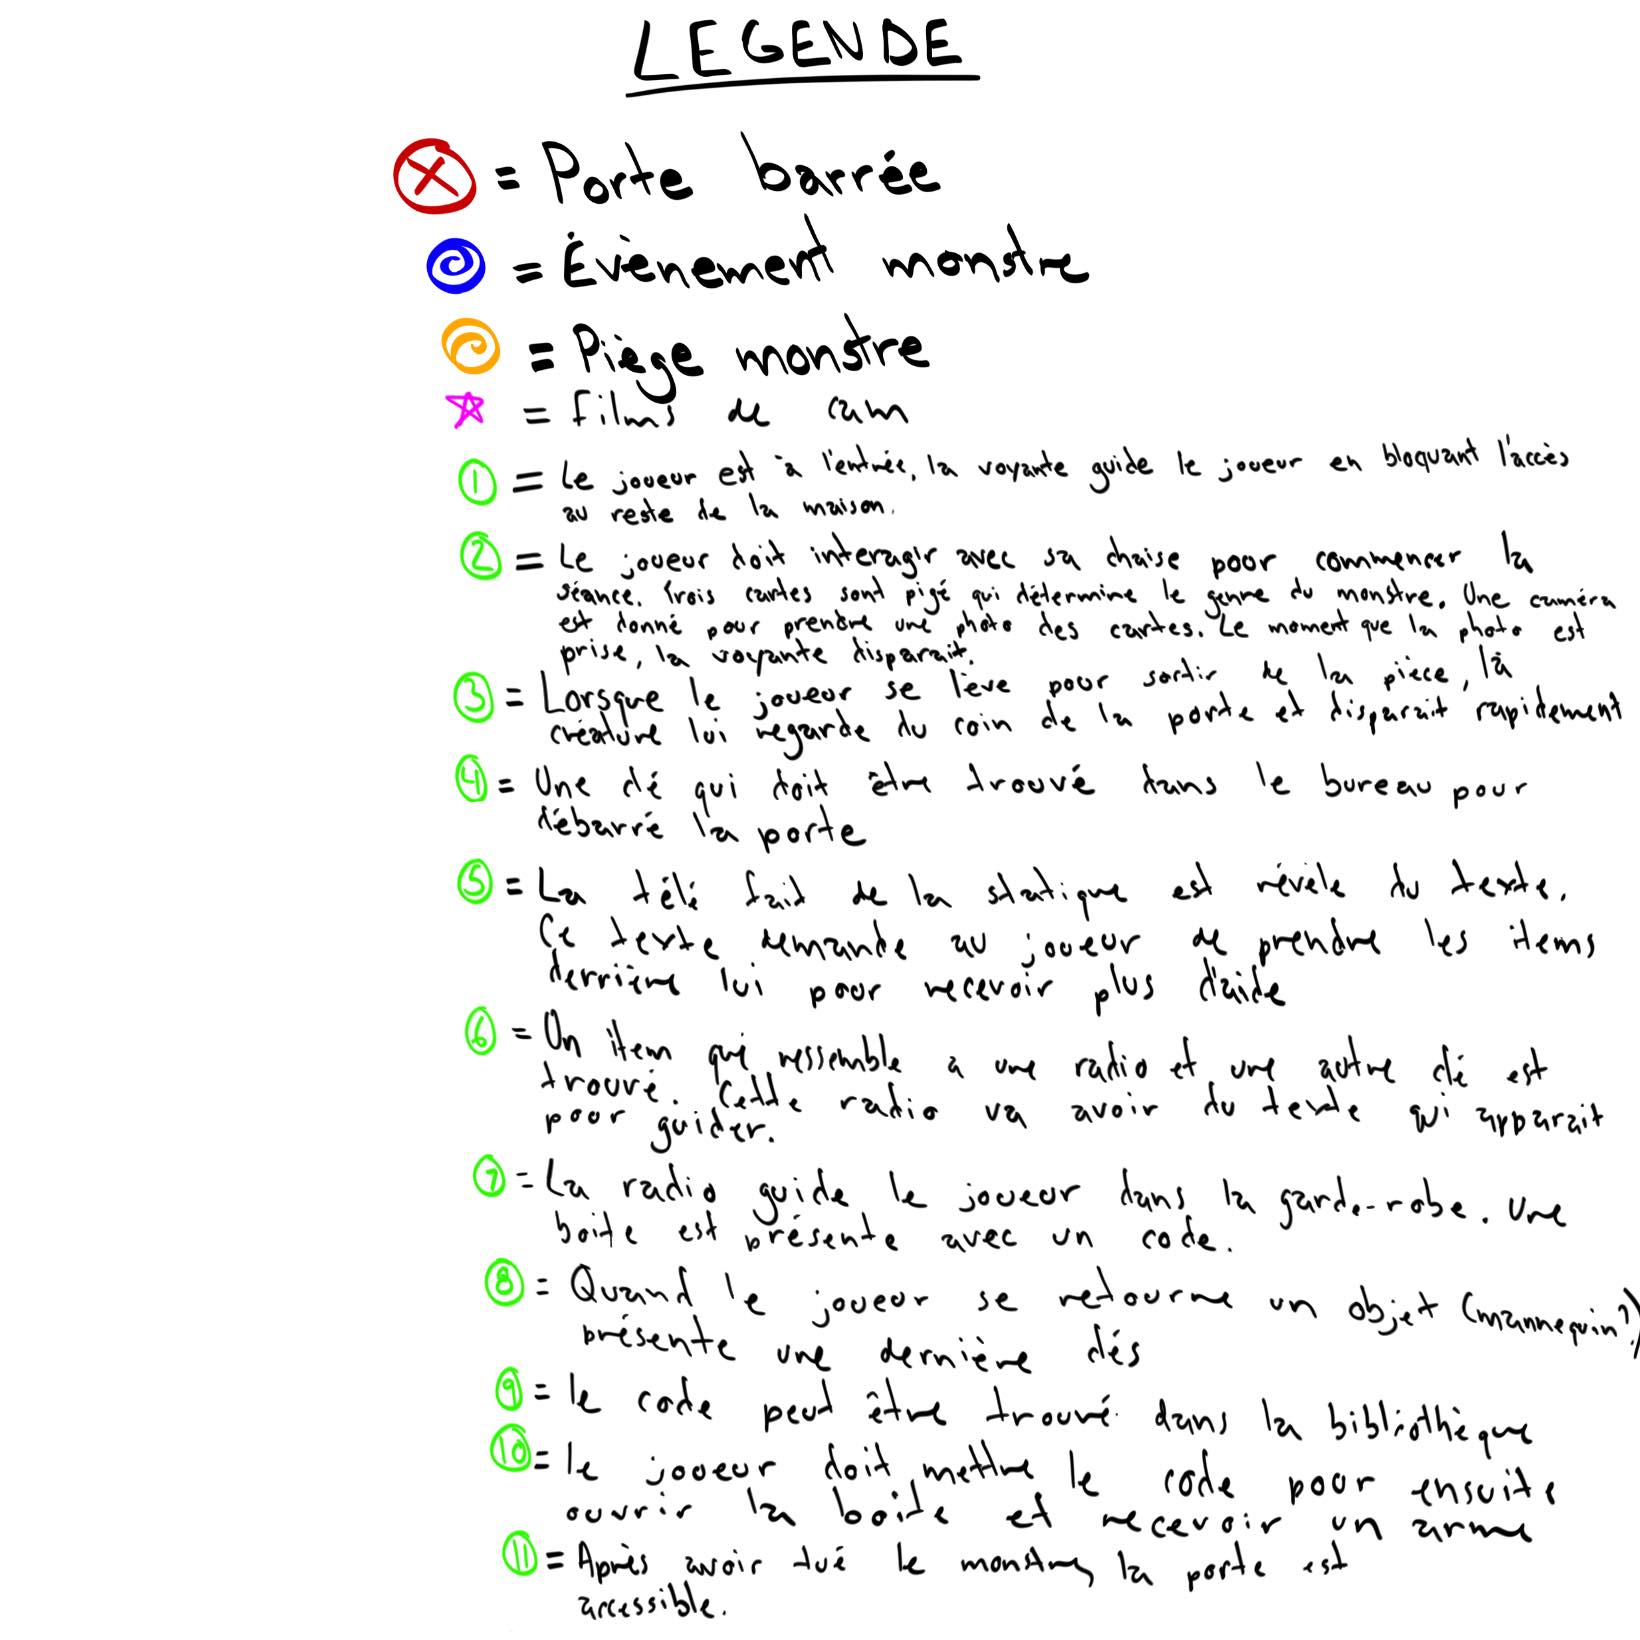 LEGENDE
X = Porte barrée
= Évènement monstre
= Piège monstre
= films de cam
1 = Le joueur est à l'entrée, la voyante guide le joueur en bloquant l'accès
au reste de la maison.
2 = Le joueur doit interagir avec sa chaise pour commencer la
séance. Trois cartes sont pigé qui détermine le genre du monstre. Une caméra
est donné pour prendre une photo des cartes. Le moment que la photo est
prise, la voyante disparait.
3 = Lorsque le joueur se lève pour sortir de la pièce, la
créature lui regarde du coin de la porte et disparait rapidement
4 = Une clé qui doit être trouvé dans le bureau pour
débarré la porte
5 = La télé fait de la statique est révèle du texte.
Ce texte demande au joueur de prendre les items
derrière lui pour recevoir plus d'aide
6 = Un item qui ressemble a une radio et une autre clé est
trouvé. Cette radio va avoir du texte qui apparait
pour guider.
7 = La radio guide le joueur dans la garde-robe. Une
boite est présente avec un code.
8 = Quand le joueur se retourne un objet (mannequin?)
présente une dernière clés
9 = le code peut être trouvé dans la bibliothèque
10 = le joueur doit mettre le code pour ensuite
ouvrir la boite et recevoir un arme
11 = Après avoir tué le monstre, la porte est
accessible.